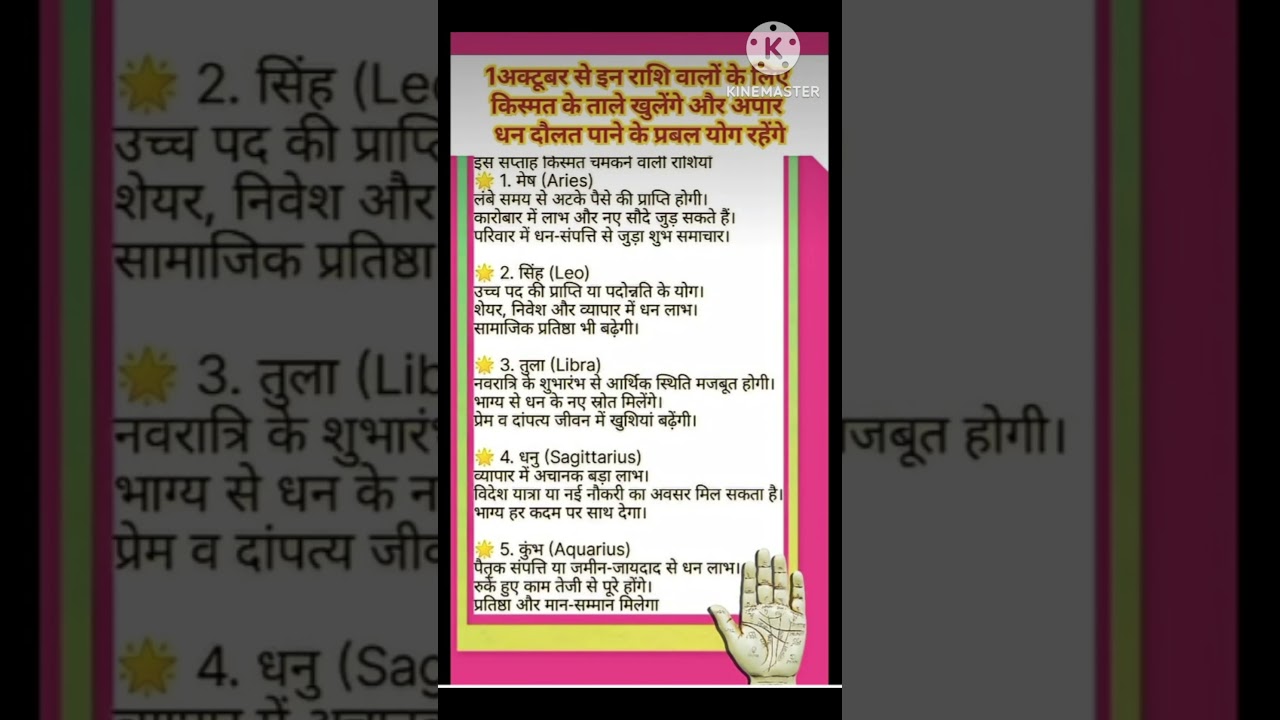 1अक्टूबर से इन राशि वालों के लिए
किस्मत के ताले खुलेंगे और अपार
धन दौलत पाने के प्रबल योग रहेंगे
K
KINEMASTER
इस सप्ताह किस्मत चमकने वाली राशियाँ
🌟 1. मेष (Aries)
लंबे समय से अटके पैसे की प्राप्ति होगी।
कारोबार में लाभ और नए सौदे जुड़ सकते हैं।
परिवार में धन-संपत्ति से जुड़ा शुभ समाचार।
🌟 2. सिंह (Leo)
उच्च पद की प्राप्ति या पदोन्नति के योग।
शेयर, निवेश और व्यापार में धन लाभ।
सामाजिक प्रतिष्ठा भी बढ़ेगी।
🌟 3. तुला (Libra)
नवरात्रि के शुभारंभ से आर्थिक स्थिति मजबूत होगी।
भाग्य से धन के नए स्रोत मिलेंगे।
प्रेम व दांपत्य जीवन में खुशियां बढ़ेंगी।
🌟 4. धनु (Sagittarius)
व्यापार में अचानक बड़ा लाभ।
विदेश यात्रा या नई नौकरी का अवसर मिल सकता है।
भाग्य हर कदम पर साथ देगा।
🌟 5. कुंभ (Aquarius)
पैतृक संपत्ति या जमीन-जायदाद से धन लाभ।
रुके हुए काम तेजी से पूरे होंगे।
प्रतिष्ठा और मान-सम्मान मिलेगा
🌟 2. सिंह (Le
उच्च पद की प्राप्ति
शेयर, निवेश और
सामाजिक प्रतिष्ठा
🌟 3. तुला (Lib
नवरात्रि के शुभारं
जबूत होगी।
भाग्य से धन के न
प्रेम व दांपत्य जीव
🌟 4. धनु (Sag